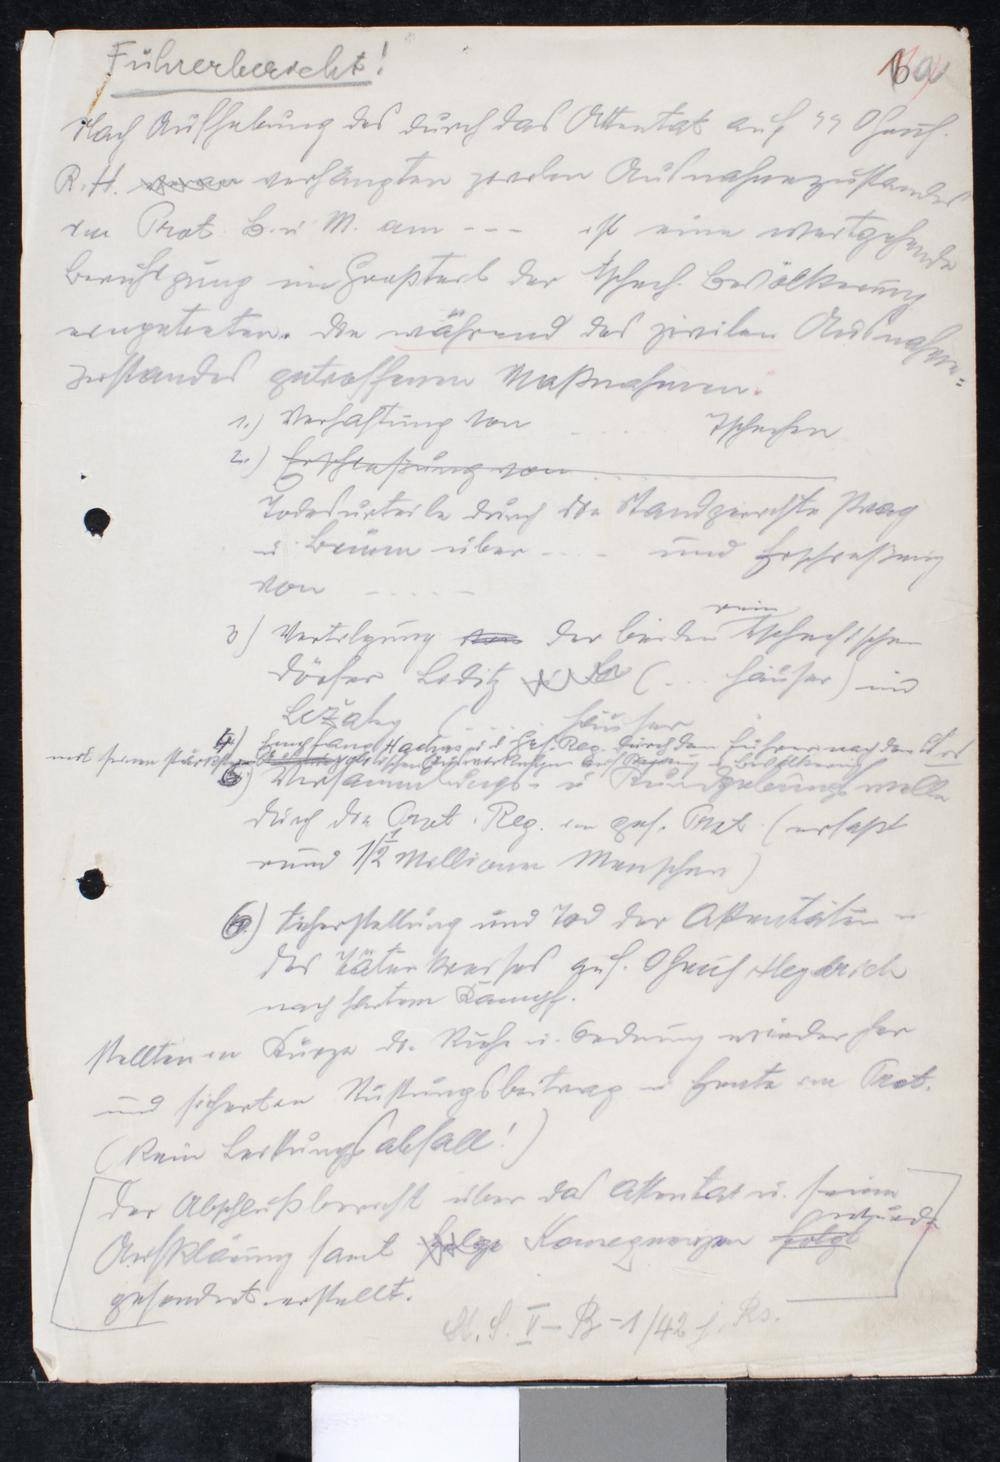 Führerbericht!
Nach Aufhebung des durch das Attentat auf SS Ogruf.
R. H. verhängten zivilen Ausnahmezustandes
im Prot. B. u. M. am - - - ist eine weitgehende
Beruhigung im Großteil der tschech. Bevölkerung
eingetreten. Die während des zivilen Ausnahme-
zustandes getroffenen Maßnahmen:
1.) Verhaftung von . . . . Tschechen
2.) Erschießung von
Todesurteile durch die Standgerichte Prag
u. Brünn über - - - - und Erschießung
von - - - - -
3) Vertilgung der beiden rein tschechischen
Dörfer Liditz (. . . Häuser) und
Ležaky ( . . . Häuser
4) Empfang Hachas u. d. Ges. Reg. durch den Führer nach dem
mit seinen stärksten Auswirkungen auf Regierung u. Bevölkerung
5) Versammlungs- u. Kundgebungswelle
durch die Prot. Reg. im ges. Prot. (erfaßt
rund 1½ Millionen Menschen)
6.) Sicherstellung und Tod der Attentäter u.
des Täterkreises auf Ogruf Heydrich
nach hartem Kampf.
stellten in Kürze die Ruhe u. Ordnung wieder her
und sicherten Rüstungsbeitrag u. Ernte im Prot.
(Kein Leistungsabfall!)
Der Abschlußbericht über das Attentat u. seine
Aufklärung samt Konsequenzen folgt wurde
gesondert erstellt.
II-B-1/42 g. Rs.